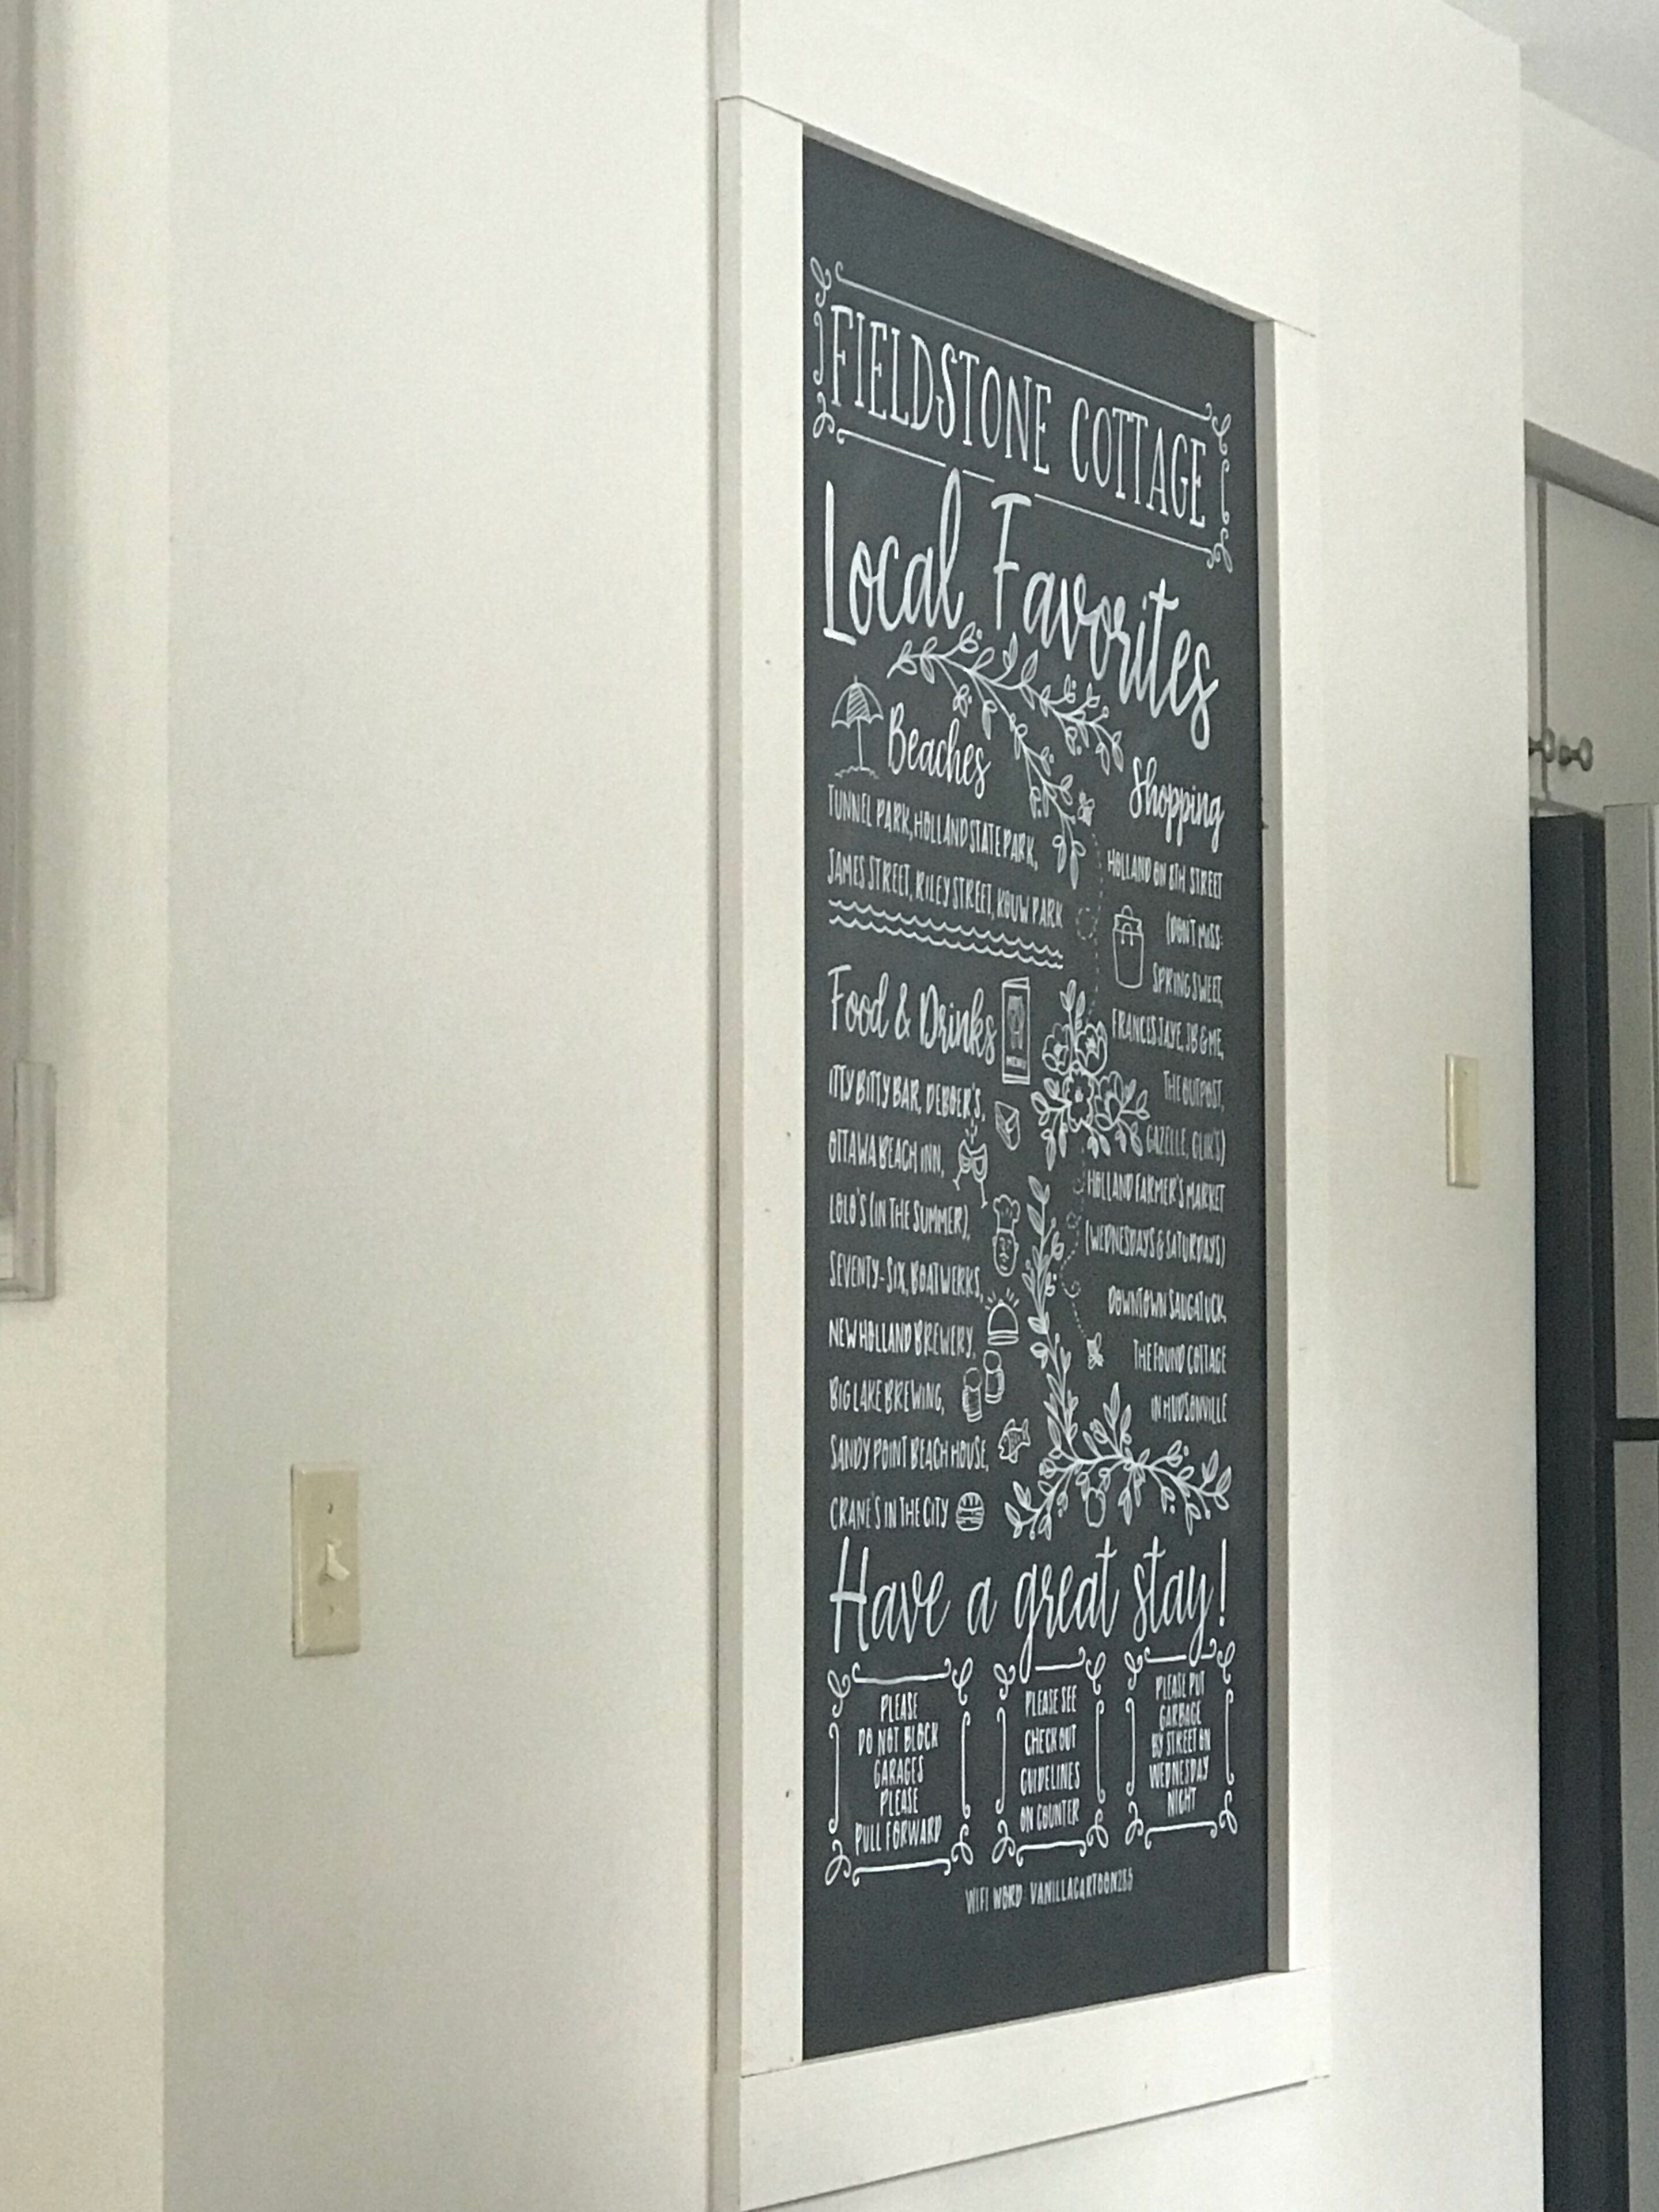 FIELDSTONE COTTAGE
Local Favorites
Beaches
TUNNEL PARK, HOLLAND STATE PARK,
JAMES STREET, RILEY STREET, KOUW PARK
Food & Drinks
MENU
ITTY BITTY BAR, DEBOER'S,
OTTAWA BEACH INN,
LOLO'S (IN THE SUMMER),
SEVENTY-SIX, BOATWERKS,
NEW HOLLAND BREWERY,
BIG LAKE BREWING,
SANDY POINT BEACH HOUSE,
CRANE'S IN THE CITY
Shopping
HOLLAND ON 8TH STREET
(DON'T MISS:
SPRING SWEET,
FRANCES JAYE, JB & ME,
THE OUTPOST,
GAZELLE, GLIK'S)
HOLLAND FARMER'S MARKET
(WEDNESDAYS & SATURDAYS)
DOWNTOWN SAUGATUCK,
THE FOUND COTTAGE
IN HUDSONVILLE
Have a great stay!
PLEASE
DO NOT BLOCK
GARAGES
PLEASE
PULL FORWARD
PLEASE SEE
CHECKOUT
GUIDELINES
ON COUNTER
PLEASE PUT
GARBAGE
BY STREET ON
WEDNESDAY
NIGHT
WIFI WORD: VANILLACARTOON285